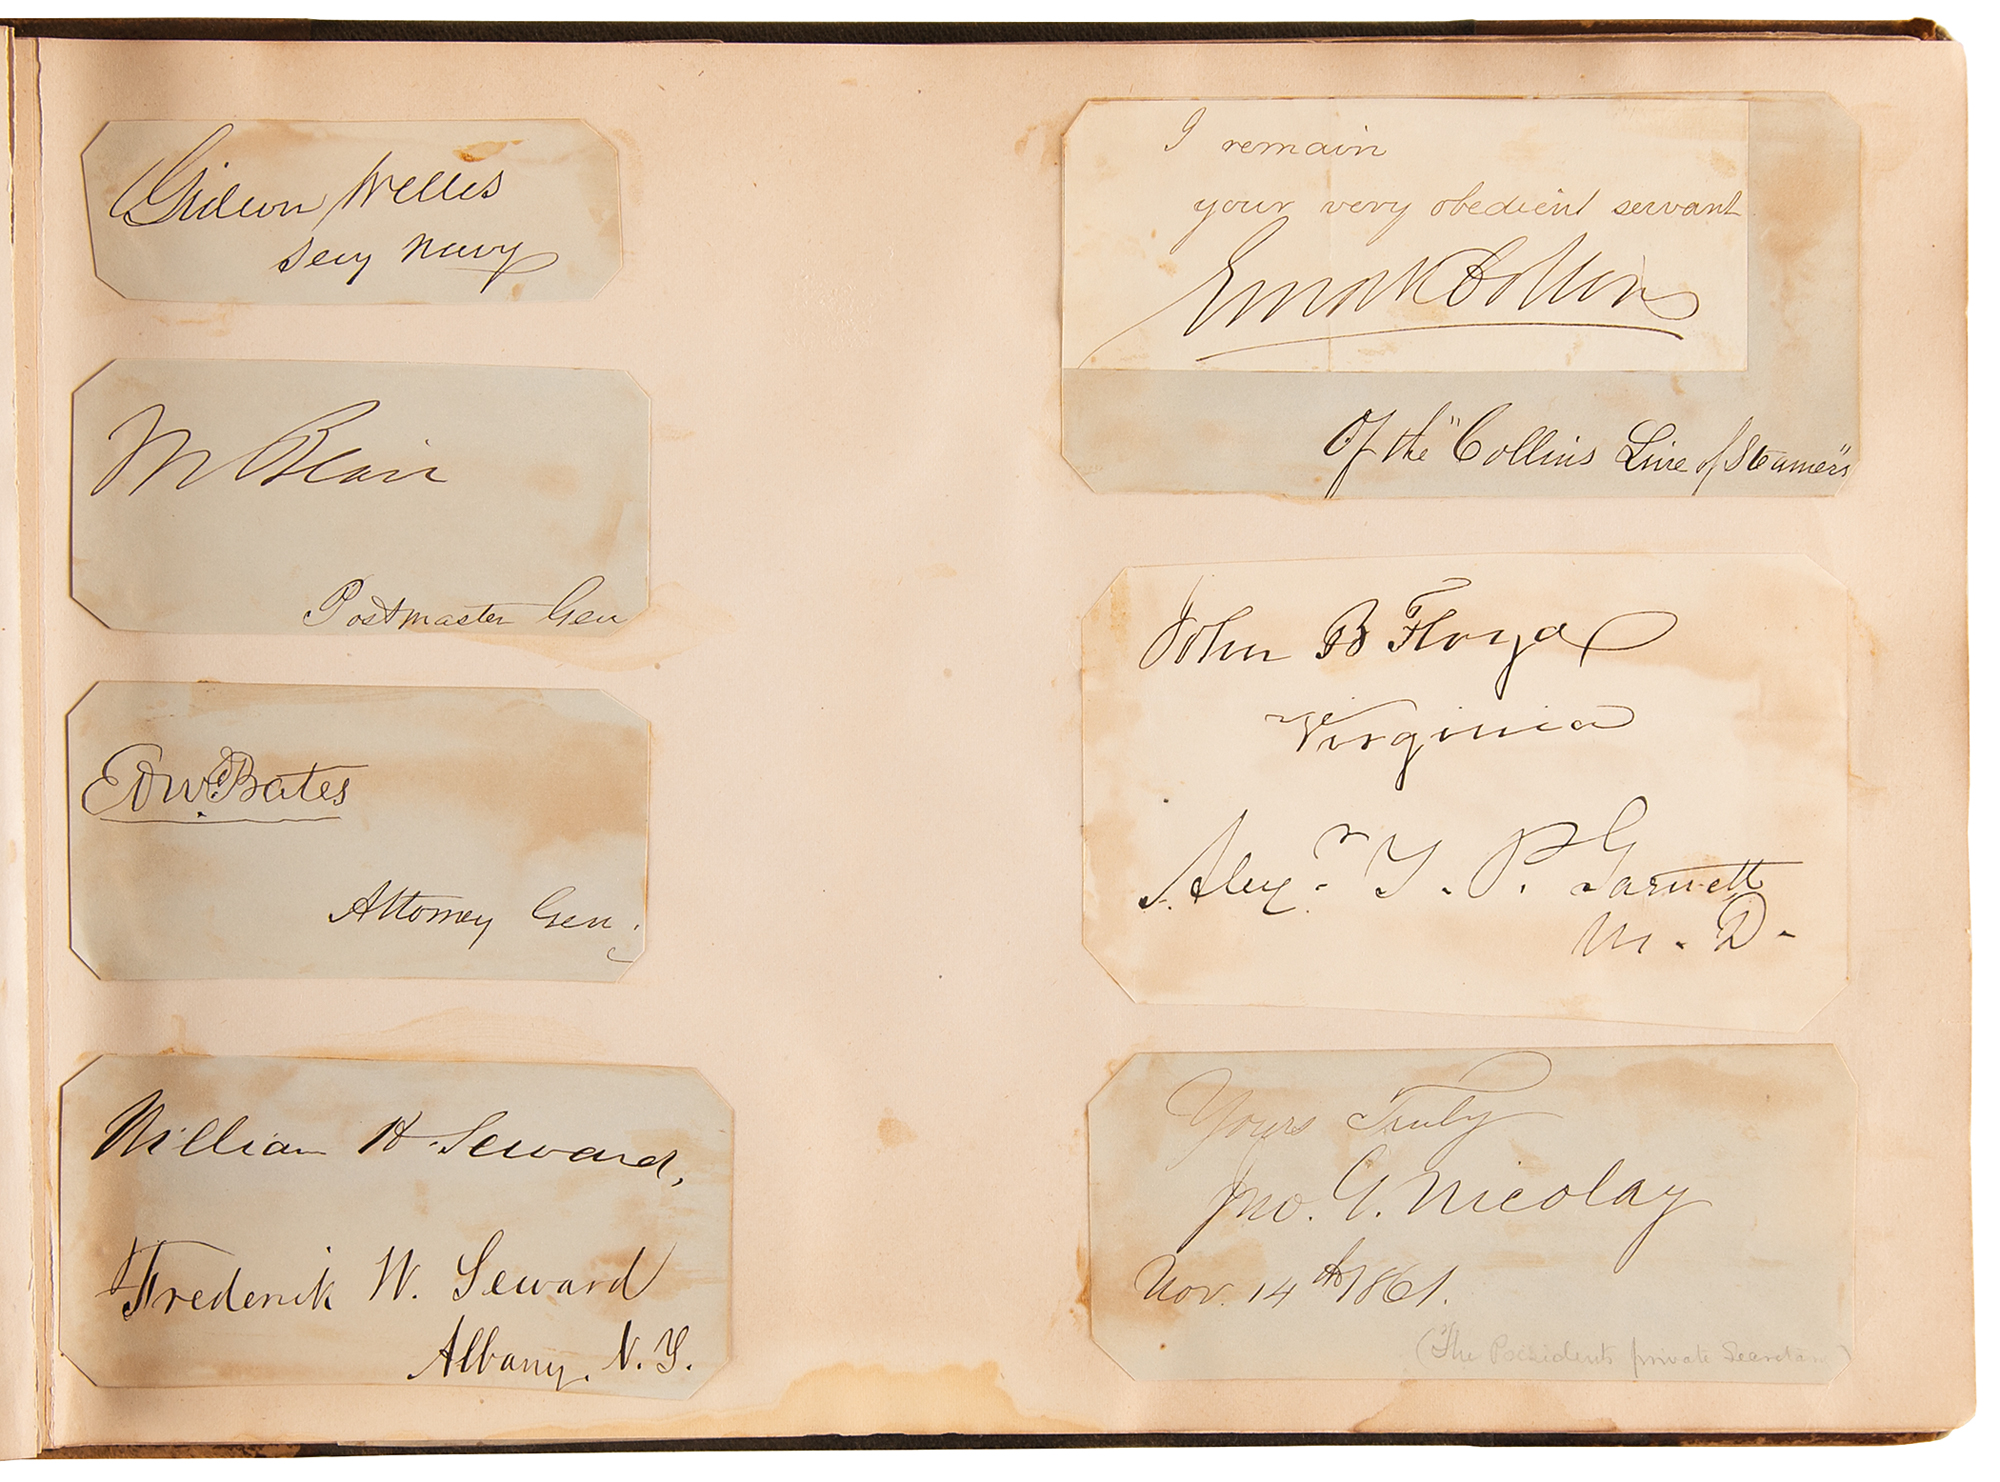 Gideon Welles
Secy Navy
M Blair
Postmaster Gen
Edwd. Bates
Attorney Gen.
William H. Seward,
Frederick W. Seward
Albany, N.Y.
I remain
your very obedient servant
Of the "Collins Line of Steamers"
John B Floyd
Virginia
Alexr. Y. P. Garnett
M. D.
Yours Truly
Jno. G. Nicolay
Nov. 14th 1861.
(The Presidents private Secretary)